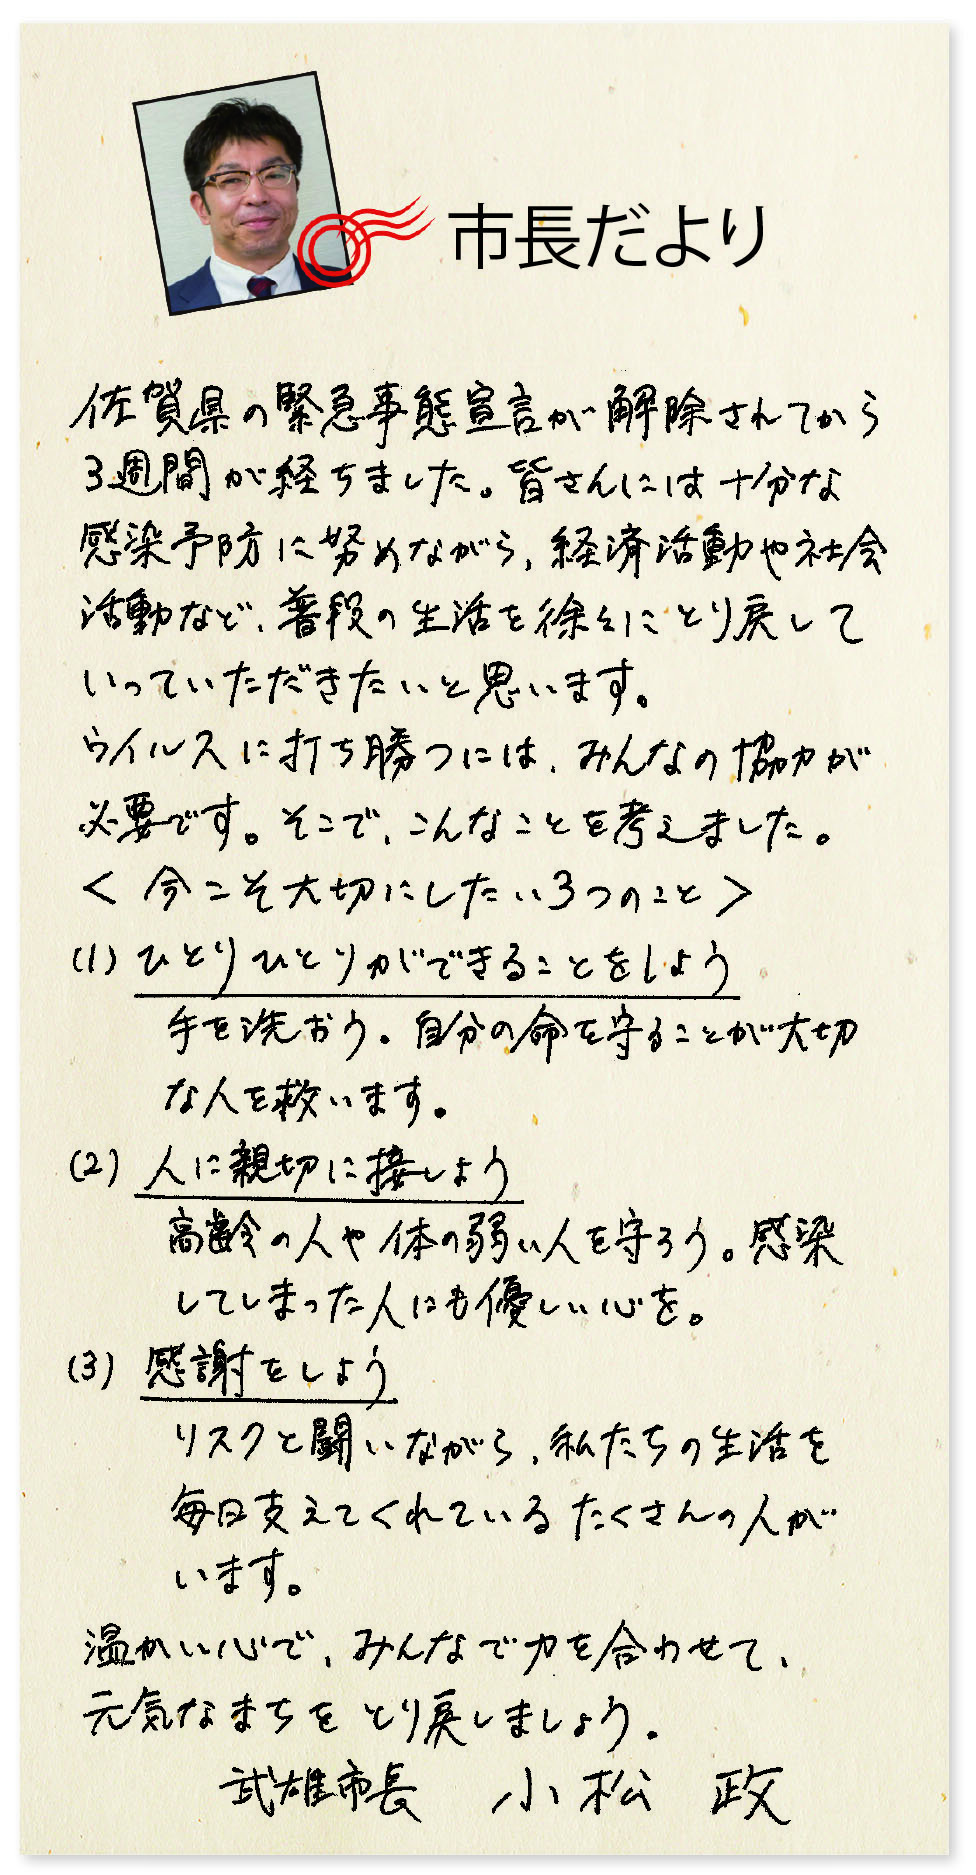 市長だより
佐賀県の緊急事態宣言が解除されてから
3週間が経ちました。皆さんには十分な
感染予防に努めながら、経済活動や社会
活動など、普段の生活を徐々にとり戻して
いっていただきたいと思います。
ウイルスに打ち勝つには、みんなの協力が
必要です。そこで、こんなことを考えました。
＜今こそ大切にしたい3つのこと＞
(1) ひとりひとりができることをしよう
手を洗おう。自分の命を守ることが大切
な人を救います。
(2) 人に親切に接しよう
高齢の人や体の弱い人を守ろう。感染
してしまった人にも優しい心を。
(3) 感謝をしよう
リスクと闘いながら、私たちの生活を
毎日支えてくれているたくさんの人が
います。
温かい心で、みんなで力を合わせて、
元気なまちをとり戻しましょう。
武雄市長 小松 政